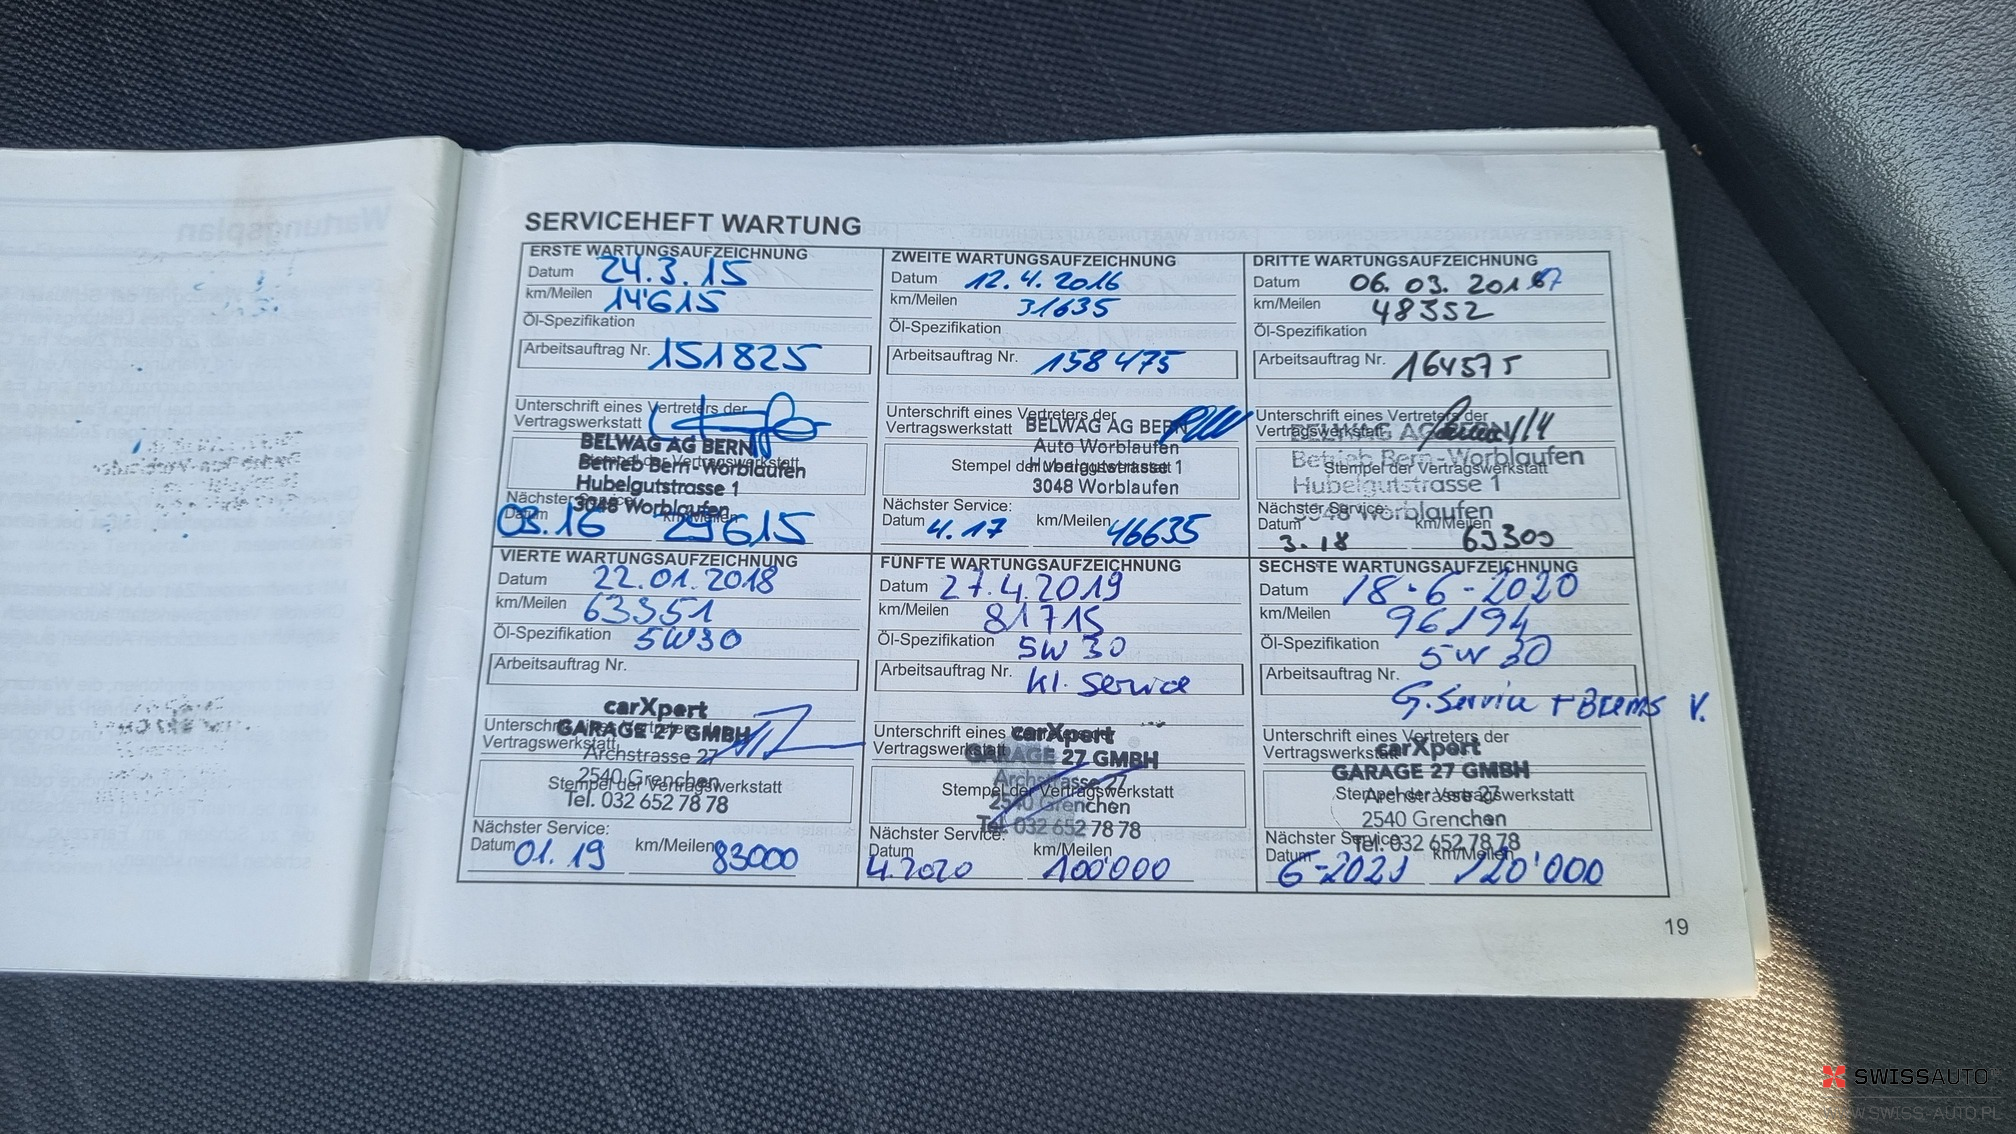 SERVICEHEFT WARTUNG
ERSTE WARTUNGSAUFZEICHNUNG
Datum 24.3.15
km/Meilen 14'615
Öl-Spezifikation
Arbeitsauftrag Nr. 151825
Unterschrift eines Vertreters der
Vertragswerkstatt
BELWAG AG BERN
Betrieb Bern-Worblaufen
Stempel der Vertragswerkstatt
Hubelgutstrasse 1
3048 Worblaufen
Nächster Service:
Datum 03.16 km/Meilen 29615
ZWEITE WARTUNGSAUFZEICHNUNG
Datum 12.4.2016
km/Meilen 31635
Öl-Spezifikation
Arbeitsauftrag Nr. 158475
Unterschrift eines Vertreters der
Vertragswerkstatt BELWAG AG BERN
Auto Worblaufen
Stempel der Vertragswerkstatt
Hubelgutstrasse 1
3048 Worblaufen
Nächster Service:
Datum 4.17 km/Meilen 46635
DRITTE WARTUNGSAUFZEICHNUNG
Datum 06.03.2017
km/Meilen 48352
Öl-Spezifikation
Arbeitsauftrag Nr. 164575
Unterschrift eines Vertreters der
Vertragswerkstatt
BELWAG AG BERN
Betrieb Bern-Worblaufen
Stempel der Vertragswerkstatt
Hubelgutstrasse 1
3048 Worblaufen
Nächster Service:
Datum 3.18 km/Meilen 63300
VIERTE WARTUNGSAUFZEICHNUNG
Datum 22.01.2018
km/Meilen 63351
Öl-Spezifikation 5W30
Arbeitsauftrag Nr.
carXpert
Unterschrift eines Vertreters der
GARAGE 27 GMBH
Vertragswerkstatt
Archstrasse 27
2540 Grenchen
Stempel der Vertragswerkstatt
Tel. 032 652 78 78
Nächster Service:
Datum 01.19 km/Meilen 83000
FÜNFTE WARTUNGSAUFZEICHNUNG
Datum 27.4.2019
km/Meilen 81715
Öl-Spezifikation 5W30
Arbeitsauftrag Nr. kl. Service
Unterschrift eines Vertreters der
carXpert
Vertragswerkstatt
GARAGE 27 GMBH
Archstrasse 27
Stempel der Vertragswerkstatt
2540 Grenchen
Tel. 032 652 78 78
Nächster Service:
Datum 4.2020 km/Meilen 100'000
SECHSTE WARTUNGSAUFZEICHNUNG
Datum 18-6-2020
km/Meilen 96194
Öl-Spezifikation 5W30
Arbeitsauftrag Nr.
G. Service + Brems V.
Unterschrift eines Vertreters der
Vertragswerkstatt
carXpert
GARAGE 27 GMBH
Archstrasse 27
Stempel der Vertragswerkstatt
2540 Grenchen
Nächster Service:
Tel. 032 652 78 78
Datum 6-2021 km/Meilen 120'000
19
Wartungsplan
SWISSAUTO
WWW.SWISS-AUTO.PL